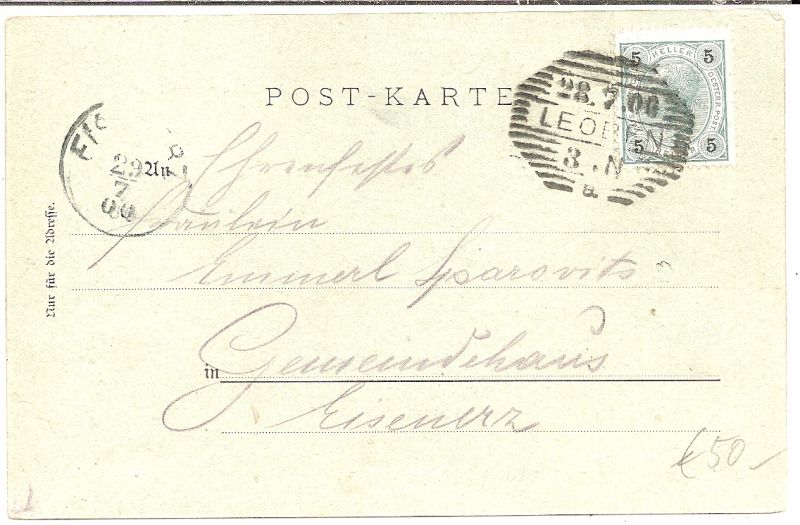 POST-KARTE
5 HELLER 5
OESTERR. POST
5 5
28.7.00
LEOBEN
3.N
a
29
7
00
An Ehrenfestes
Fräulein
Emmerl Sparovits
in Gemeindehaus
Eisenerz
Nur für die Adresse.
€50